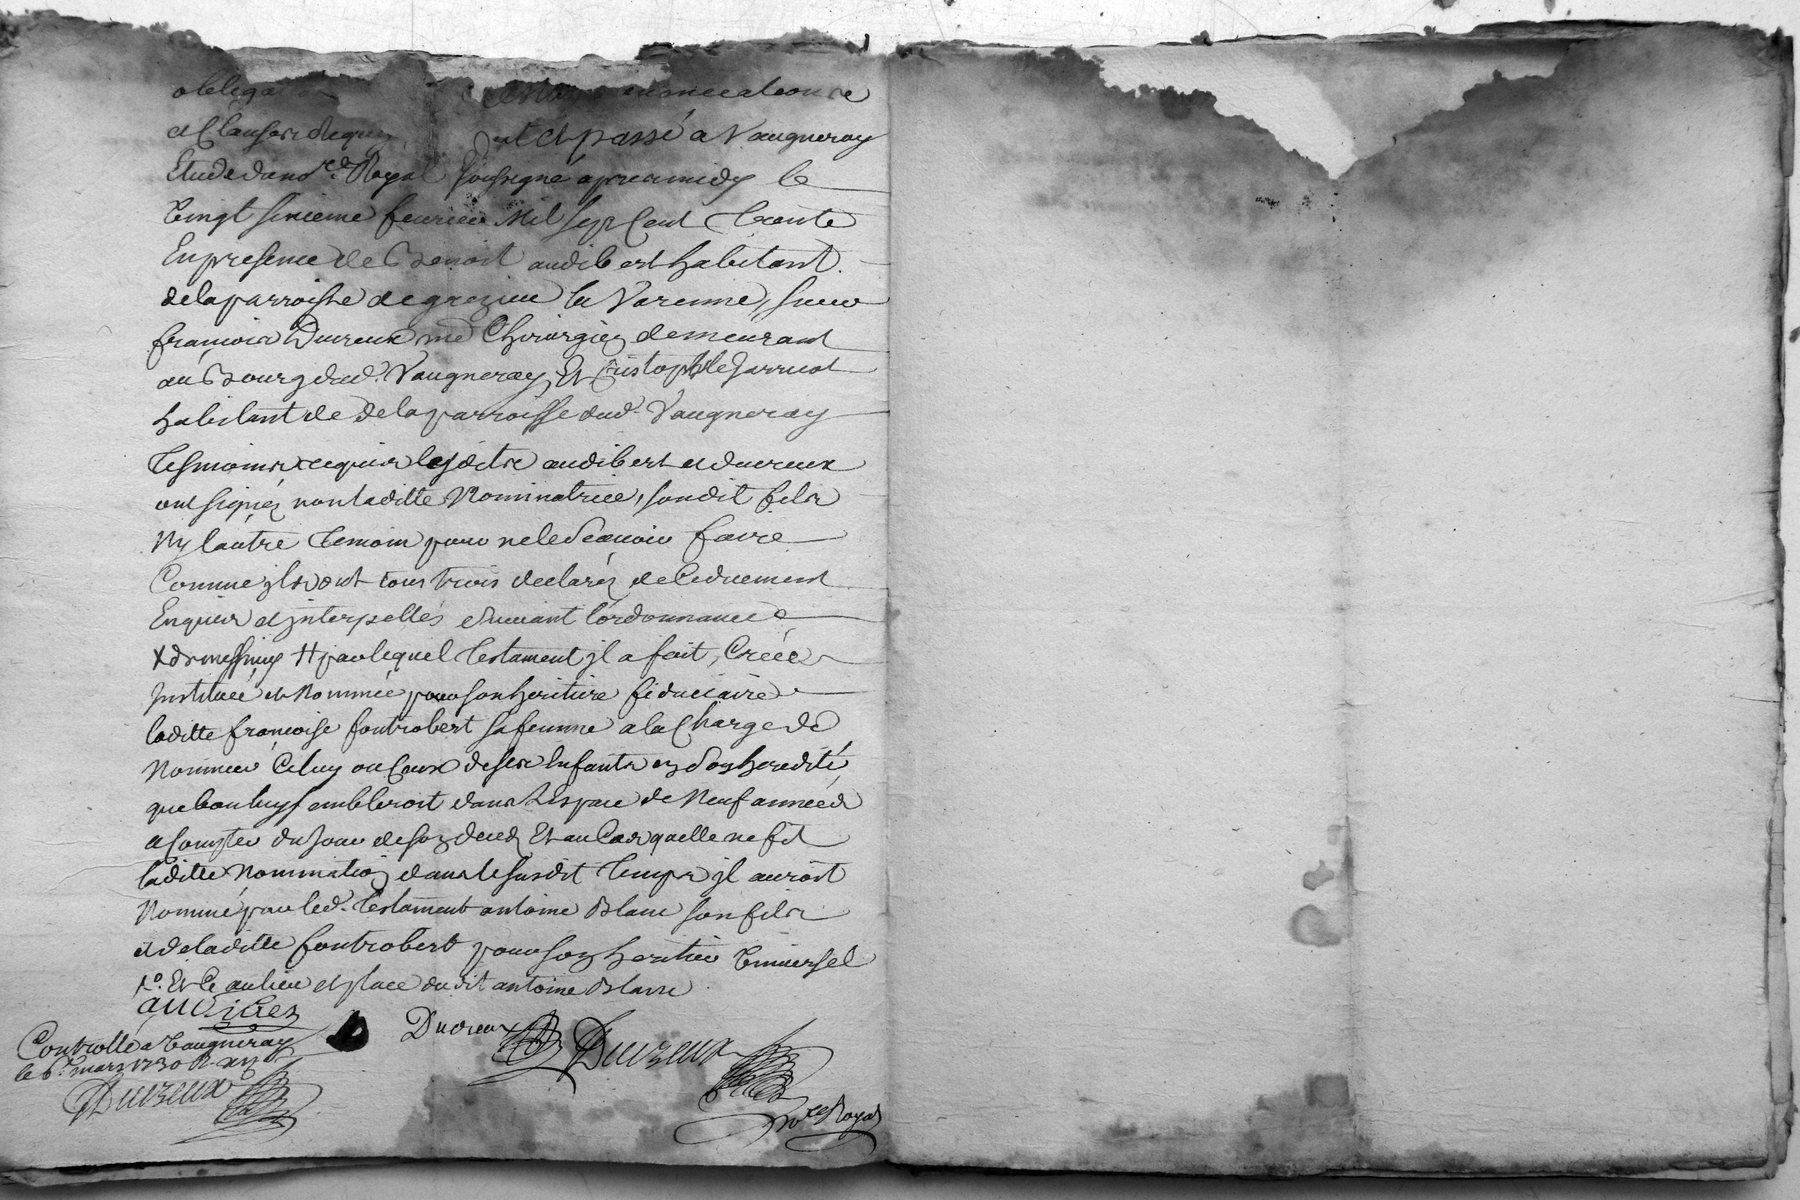 obliga
et Clauses Requi fait et passé a Vaugneray
Etude du no.re Royal soussigné apres midy le
Vingt sixieme feurier Mil sept Cent Trente
En presence de Benoit audibert habitant
de la parroisse de grezieu la Varenne, sieur
françois Ducreux me Chirurgien demeurant
au Bourg dud. Vaugneray, Et Cristophle Jarricot
habitant de de la parroisse dud. Vaugneray
Tesmoins requis lesdits audibert et ducreux
ont signéz non laditte Nominatrice, sondit fils
Ny lautre Temoin pour ne le Scauoir faire
Comme ils ont tous trois declaréz de Ce duement
Enquis et interpellés suiuant lordonnance
X de messimy H par lequel Testament il a fait, Créée
Instituée et Nommée pour son heritiere fiduciaire
laditte françoise fontrobert sa femme a la Charge de
Nommer Celuy ou Ceux de ses Enfants en Son heredité
que bon luy sembleroit dans L'Espace de Neuf années
a Compter du Jour de son deced Et au Cas quelle ne fit
laditte Nomination dans le susdit Temps il auroit
Nommé par led. Testament antoine Blanc son fils
et de laditte fontrobert pour son heritier Vniuersel
Et Ce au lieu et place dudit antoine Blanc
audibert
Ducreux Ducreux
Controllé a Vaugneray
le 6.e mars 1730 R. xij s
Ducreux
No.re Royal